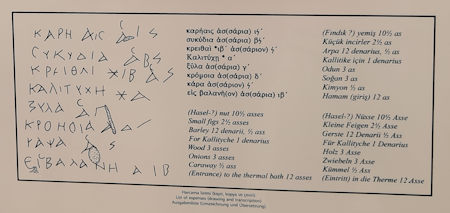 ΚΑΡΗ ΑΙϹ Α Ι S
ϹΥΚΥΔΙΑ Α Β S
ΚΡΕΙΘΑΙ ✳ ΙΒ Α S
ΚΑΛΙΤΥΧΗ ✳ Α
ΞΥΛΑ Α
ΚΡΟΜΟΙΑ Α
ΕΙϹ ΒΑΛΑΝΗ Α ΙΒ
καρήαις ἀσ(σάρια) ιϛ´
συκύδια ἀσ(σάρια) βϛ´
κρειθαὶ *ιβ´ ἀσ(σάριον) ϛ´
Καλιτύχῃ * α´
ξύλα ἀσ(σάρια) γ´
κρόμοια ἀσ(σάρια) δ´
κάρα ἀσσάριον) ϛ´
εἰς βαλανῆ(ον) ἀσ(σάρια) ιβ´
(Hasel-?) nut 10½ asses
Small figs 2½ asses
Barley 12 denarii, ½ ass
For Kallityche 1 denarius
Wood 3 asses
Onions 3 asses
Caraway ½ ass
(Entrance) to the thermal bath 12 asses
(Fındık ?) yemiş 10½ as
Küçük incirler 2½ as
Arpa 12 denarius, ½ as
Kallitike için 1 denarius
Odun 3 as
Soğan 3 as
Kimyon ½ as
Hamam (giriş) 12 as
(Hasel-?) Nüsse 10½ Asse
Kleine Feigen 2½ Asse
Gerste 12 Denarii ½ As
Für Kallityche 1 Denarius
Holz 3 Asse
Zwiebeln 3 Asse
Kümmel ½ Ass
(Eintritt) in die Therme 12 Asse
Harcama listesi
List of expenses (drawing and transcription)
Ausgabenliste (Umzeichnung und Übersetzung)